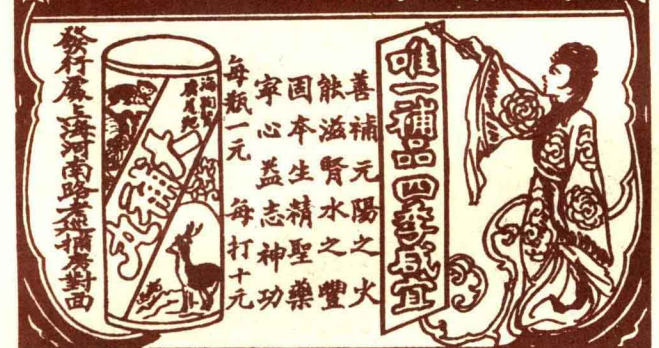 唯一補品四季咸宜
善補元陽之火
能滋腎水之豐
固本生精聖藥
寧心益志神功
每瓶一元 每打十元
大補丸
發行處上海河南路老巡捕房對面